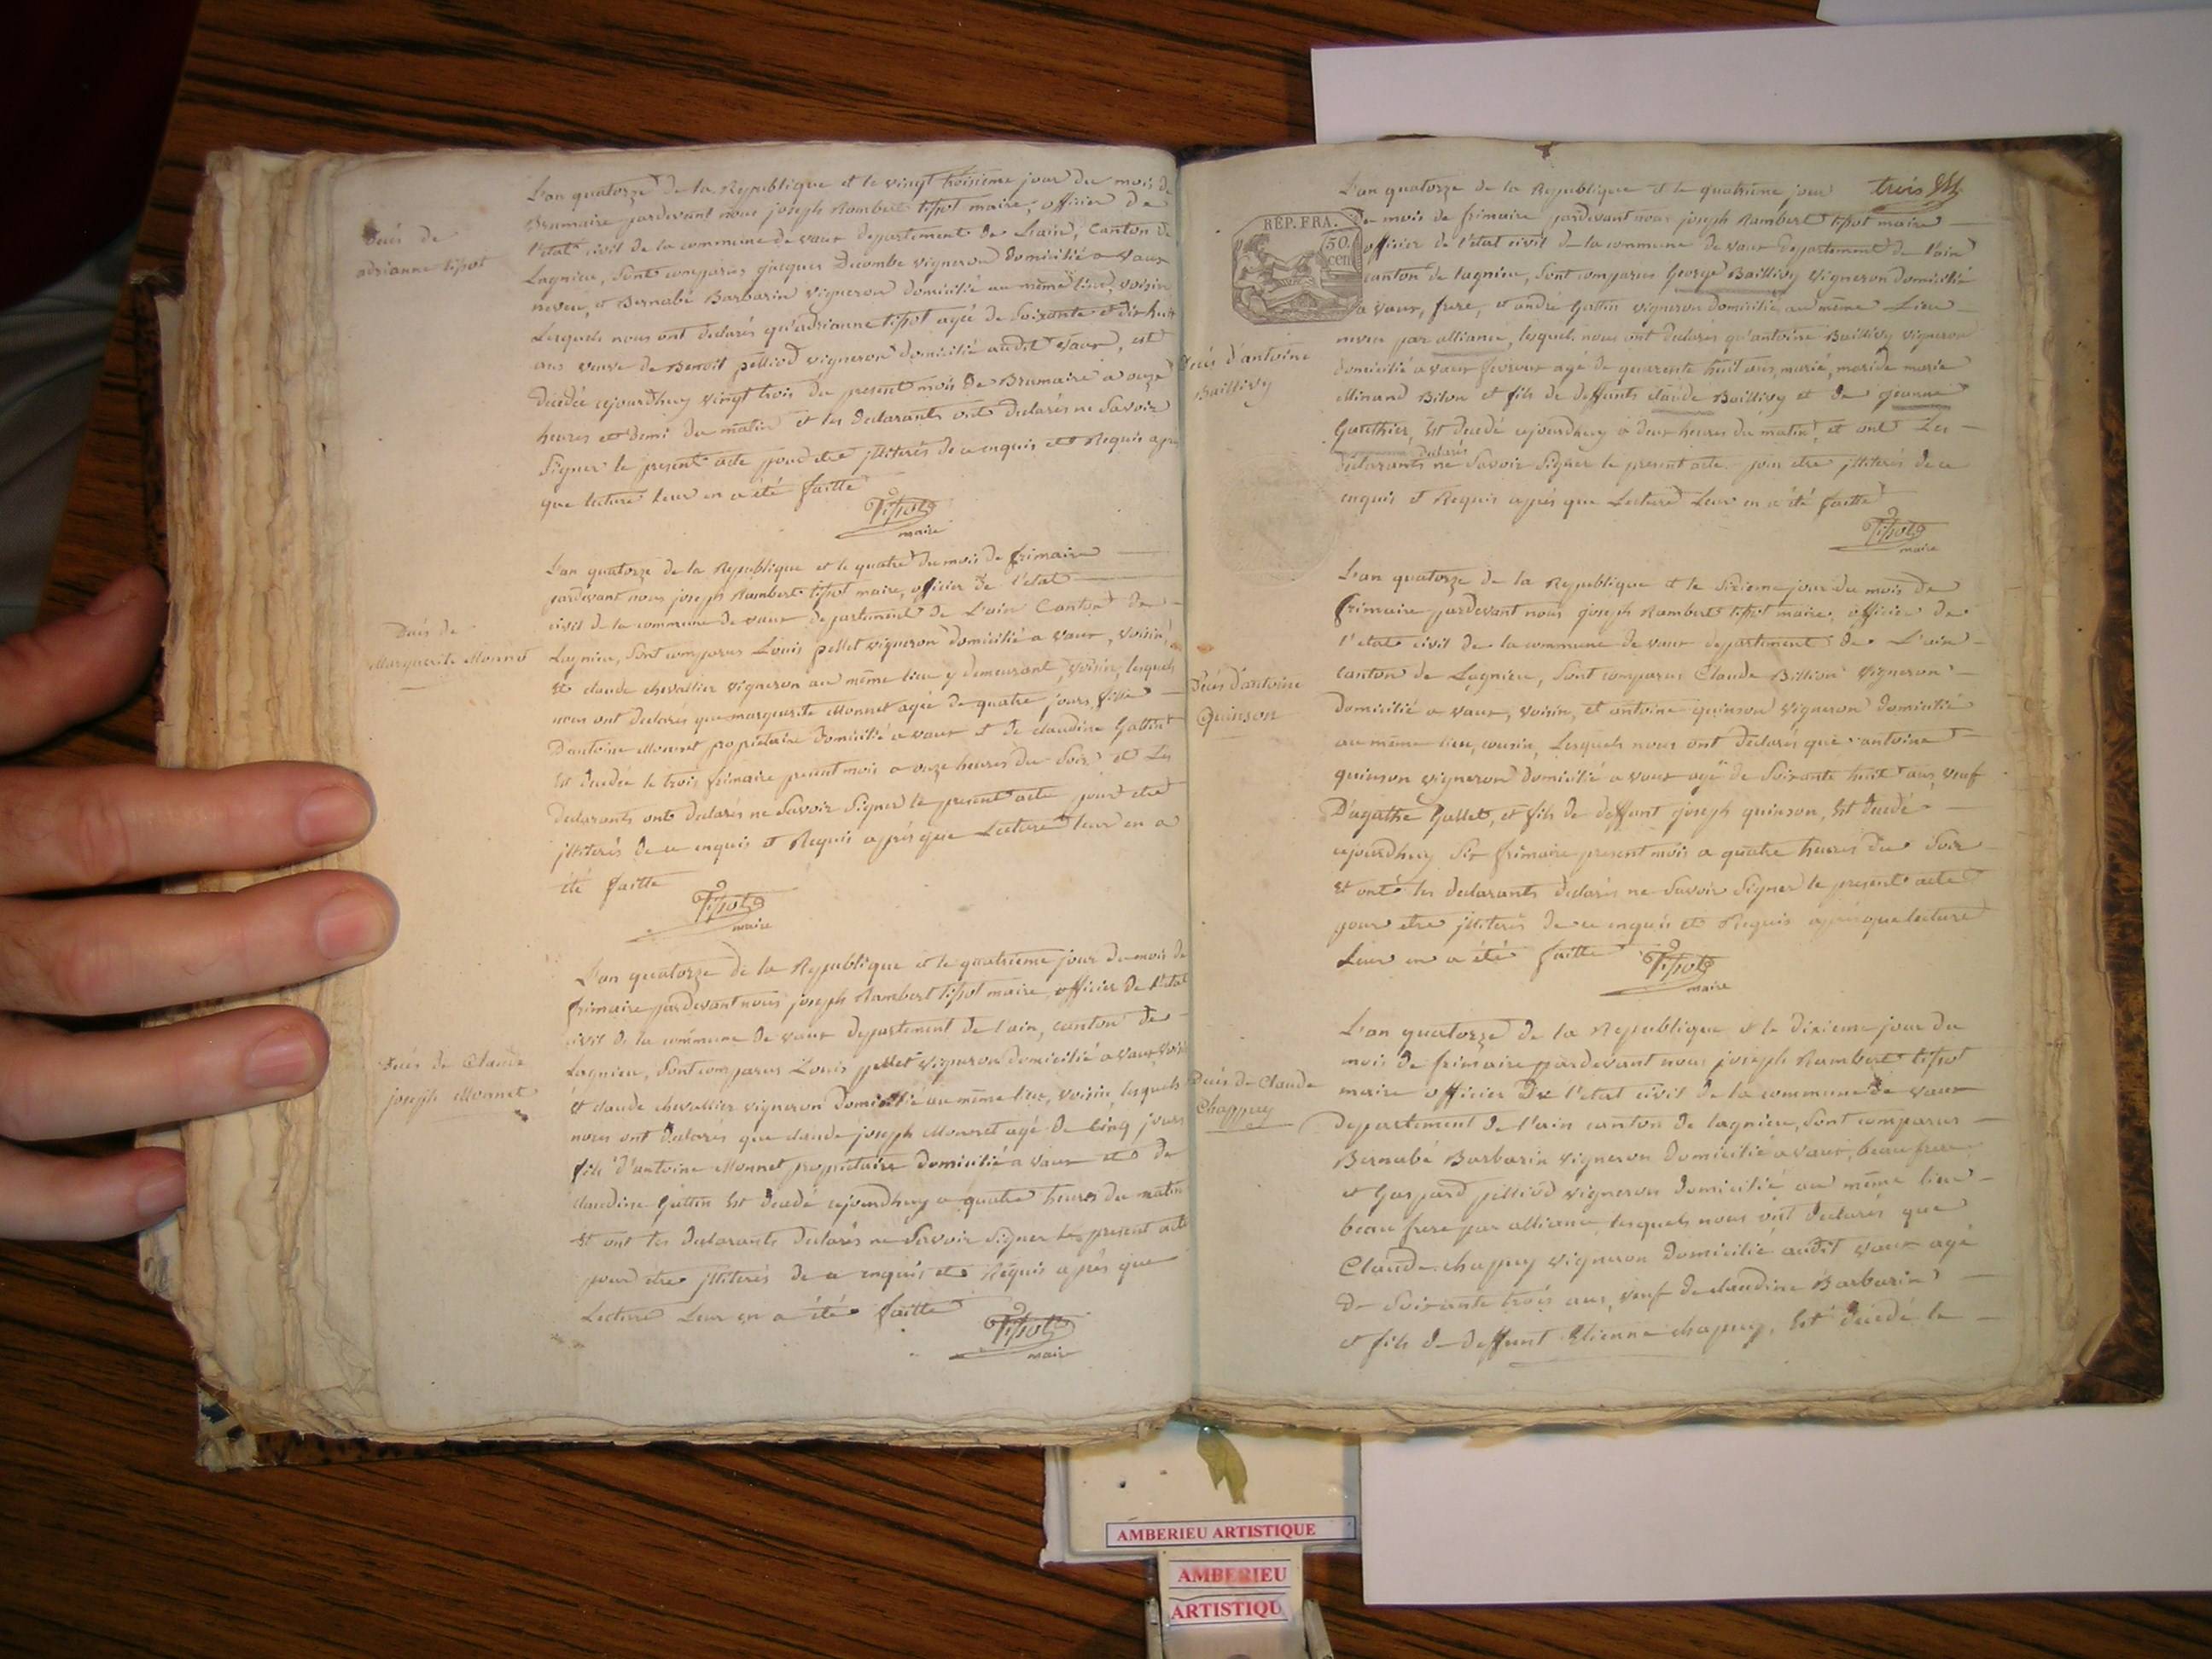 L'an quatorze de la Republique et le vingt troisieme jour du mois de
Brumaire pardevant nous joseph Rambert tissot maire, officier de
l'etat civil de la commune de vaux departement de L'ain, Canton de
Lagnieu, Sont comparus jacques Decombe vigneron domicilié a vaux
neveu, et Bernabé Barbarin vigneron domicilié au même lieu, voisin
Lesquels nous ont declarés qu'adrianne tissot agée de Soixante et dix huit
ans veuve de Benoit pelliod vigneron domicilié audit vaux, est
Decedée cejourdhuy vingt trois du present mois de Brumaire a onze
heures et demi du matin et les declarants ont declarés ne Savoir
Signer le present acte pour etre jlliterés de ce enquis et Requis apres
que lecture Leur en a été faitte
Tissot
maire
Decés de
adrianne tissot
L'an quatorze de la Republique et le quatre du mois de frimaire
pardevant nous joseph Rambert tissot maire, officier de l'etat
civil de la commune de vaux departement de L'ain Canton de
Lagnieu, Sont comparus Louis pellet vigneron domicilié a vaux, voisin,
et claude chevallier vigneron au même lieu y demeurant, voisin, lesquels
nous ont declarés que marguerite Monnet agée de quatre jours, fille
D'antoine Monnet propriétaire domicilié a vaux et de claudine Gattin
Est decedée le trois frimaire present mois a onze heures du Soir et Les
Declarants ont declarés ne Savoir Signer le present acte pour etre
jlliterés de ce enquis et Requis après que Lecture leur en a
été faitte
Tissot
maire
Decés de
Marguerite Monnet
L'an quatorze de la Republique et le quatrieme jour du mois de
frimaire pardevant nous joseph Rambert tissot maire, officier de l'etat
civil de la commune de vaux departement de l'ain, canton de
Lagnieu, Sont comparus Louis pellet vigneron domicilié a vaux voisin
Et claude chevallier vigneron domicilié au même lieu, voisin, lesquels
nous ont declarés que claude joseph Monnet agé de Cinq jours
fils d'antoine Monnet propriétaire domicilié a vaux et de
claudine Gattin Est decedé cejourdhuy a quatre heures du matin
Et ont les declarants declarés ne Savoir Signer le present acte
pour etre jlliterés de ce enquis et Requis après que
Lecture Leur en a été faitte
Tissot
maire
Decés de Claude
joseph Monnet
L'an quatorze de la Republique et le quatrieme jour
trois
du mois de frimaire pardevant nous joseph Rambert tissot maire
officier de l'etat civil de la commune de vaux departement de l'ain
canton de lagnieu, Sont comparus George Baillivy vigneron domicilié
a vaux, frere, et andré Gattin vigneron domicilié au même Lieu
neveu par alliance, lesquels nous ont declarés qu'antoine Baillivy vigneron
domicilié a vaux agé de quarente huit ans, marié, mari de marie
Minand Bilon et fils de deffunts claude Baillivy et de jeanne
Gauthier, Est decedé cejourdhuy a deux heures du matin, et ont Les
declarés
declarants ne Savoir Signer le present acte pour etre jlliterés de ce
enquis et Requis après que Lecture Leur en a été faitte
Tissot
maire
REP. FRA.
50.
cen
Decés d'antoine
Baillivy
L'an quatorze de la Republique et le Sixieme jour du mois de
frimaire pardevant nous joseph Rambert tissot maire, officier de
l'etat civil de la commune de vaux departement de L'ain
canton de Lagnieu, Sont comparus Claude Billion vigneron
domicilié a vaux, voisin, et antoine quinson vigneron domicilié
au même lieu, cousin, Lesquels nous ont declarés que antoine
quinson vigneron domicilié a vaux agé de Soixante huit ans, veuf
D'agathe Gallet, et fils de deffunt joseph quinson, Est decedé
cejourdhuy Six frimaire present mois a quatre heures du Soir
et ont les declarants declarés ne Savoir Signer le present acte
pour etre jlliterés de ce enquis et Requis après que lecture
Leur en a été faitte
Tissot
maire
Decés d'antoine
Quinson
L'an quatorze de la Republique et le dixieme jour du
mois de frimaire pardevant nous joseph Rambert tissot
maire officier De l'etat civil de la commune de vaux
departement de l'ain canton de lagnieu, Sont comparus
Bernabé Barbarin vigneron domicilié a vaux, beau frere
et Gaspard pelliod vigneron domicilié au même lieu
beau frere par alliance lesquels nous ont declarés que
Claude chapuy vigneron domicilié audit vaux agé
de Soixante trois ans, veuf de claudine Barbarin
et fils de deffunt Etienne chapuy, Est decedé le
Decés de Claude
Chappuy
AMBERIEU ARTISTIQUE
AMBERIEU
ARTISTIQU